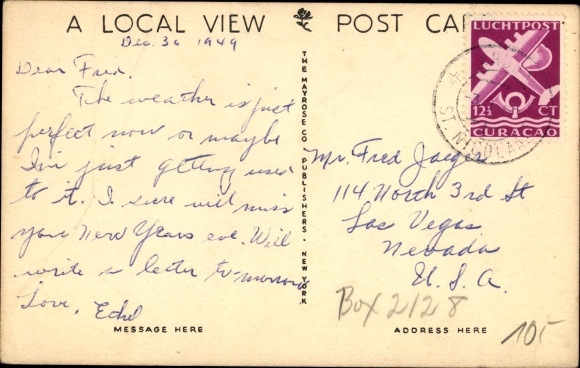 A LOCAL VIEW POST CAR
Dec. 30 1949
LUCHTPOST
12½ CT
CURAÇAO
ST. NICOLAS
Dear Fred.
The weather is just
perfect now or maybe
I'm just getting used
to it. I sure will miss
you New Years eve. Will
write a letter tomorrow
Love, Ethel
MESSAGE HERE
THE MAYROSE CO. PUBLISHERS · NEW YORK
Mr. Fred Jaeger
114 North 3rd St
Las Vegas
Nevada
U.S.A.
Box 2128
ADDRESS HERE
10,-